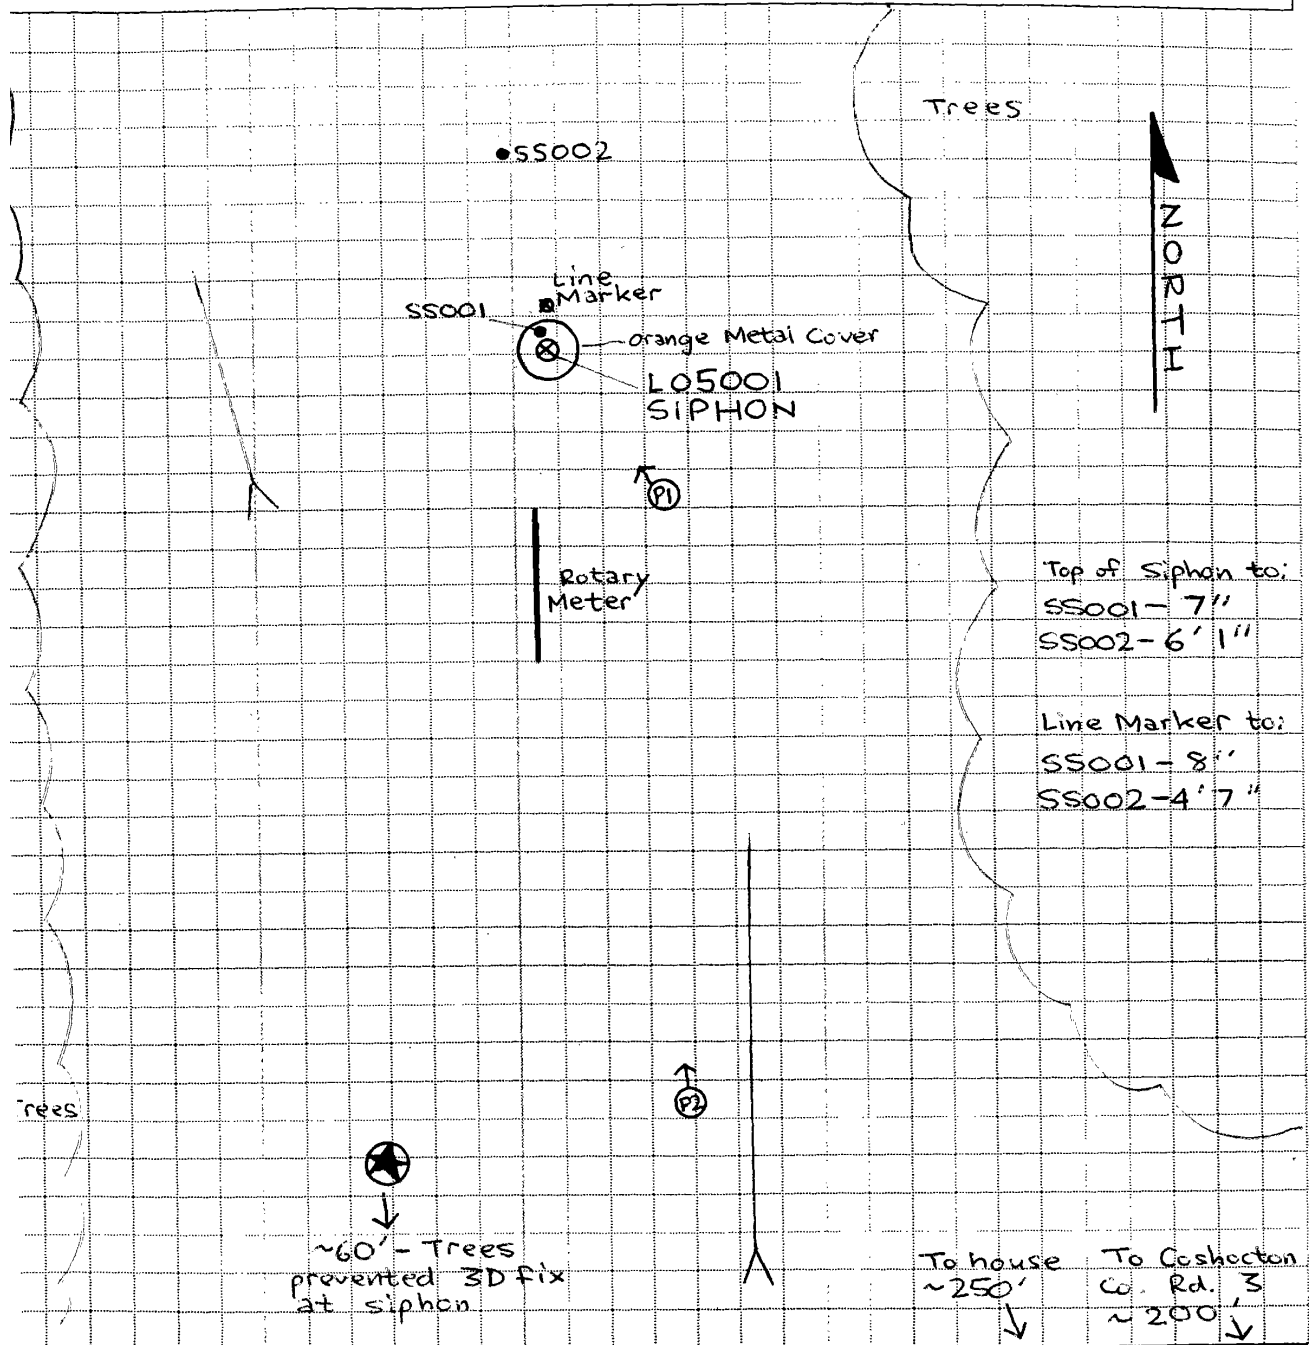 Trees
SS002
NORTH
Line
Marker
SS001
Orange Metal Cover
L05001
SIPHON
P1
Rotary
Meter
Top of Siphon to:
SS001- 7"
SS002- 6' 1"
Line Marker to:
SS001- 8"
SS002-4' 7"
P2
rees
~60' - Trees
prevented 3D fix
at siphon
To house
~250'
To Coshocton
Co. Rd. 3
~200'